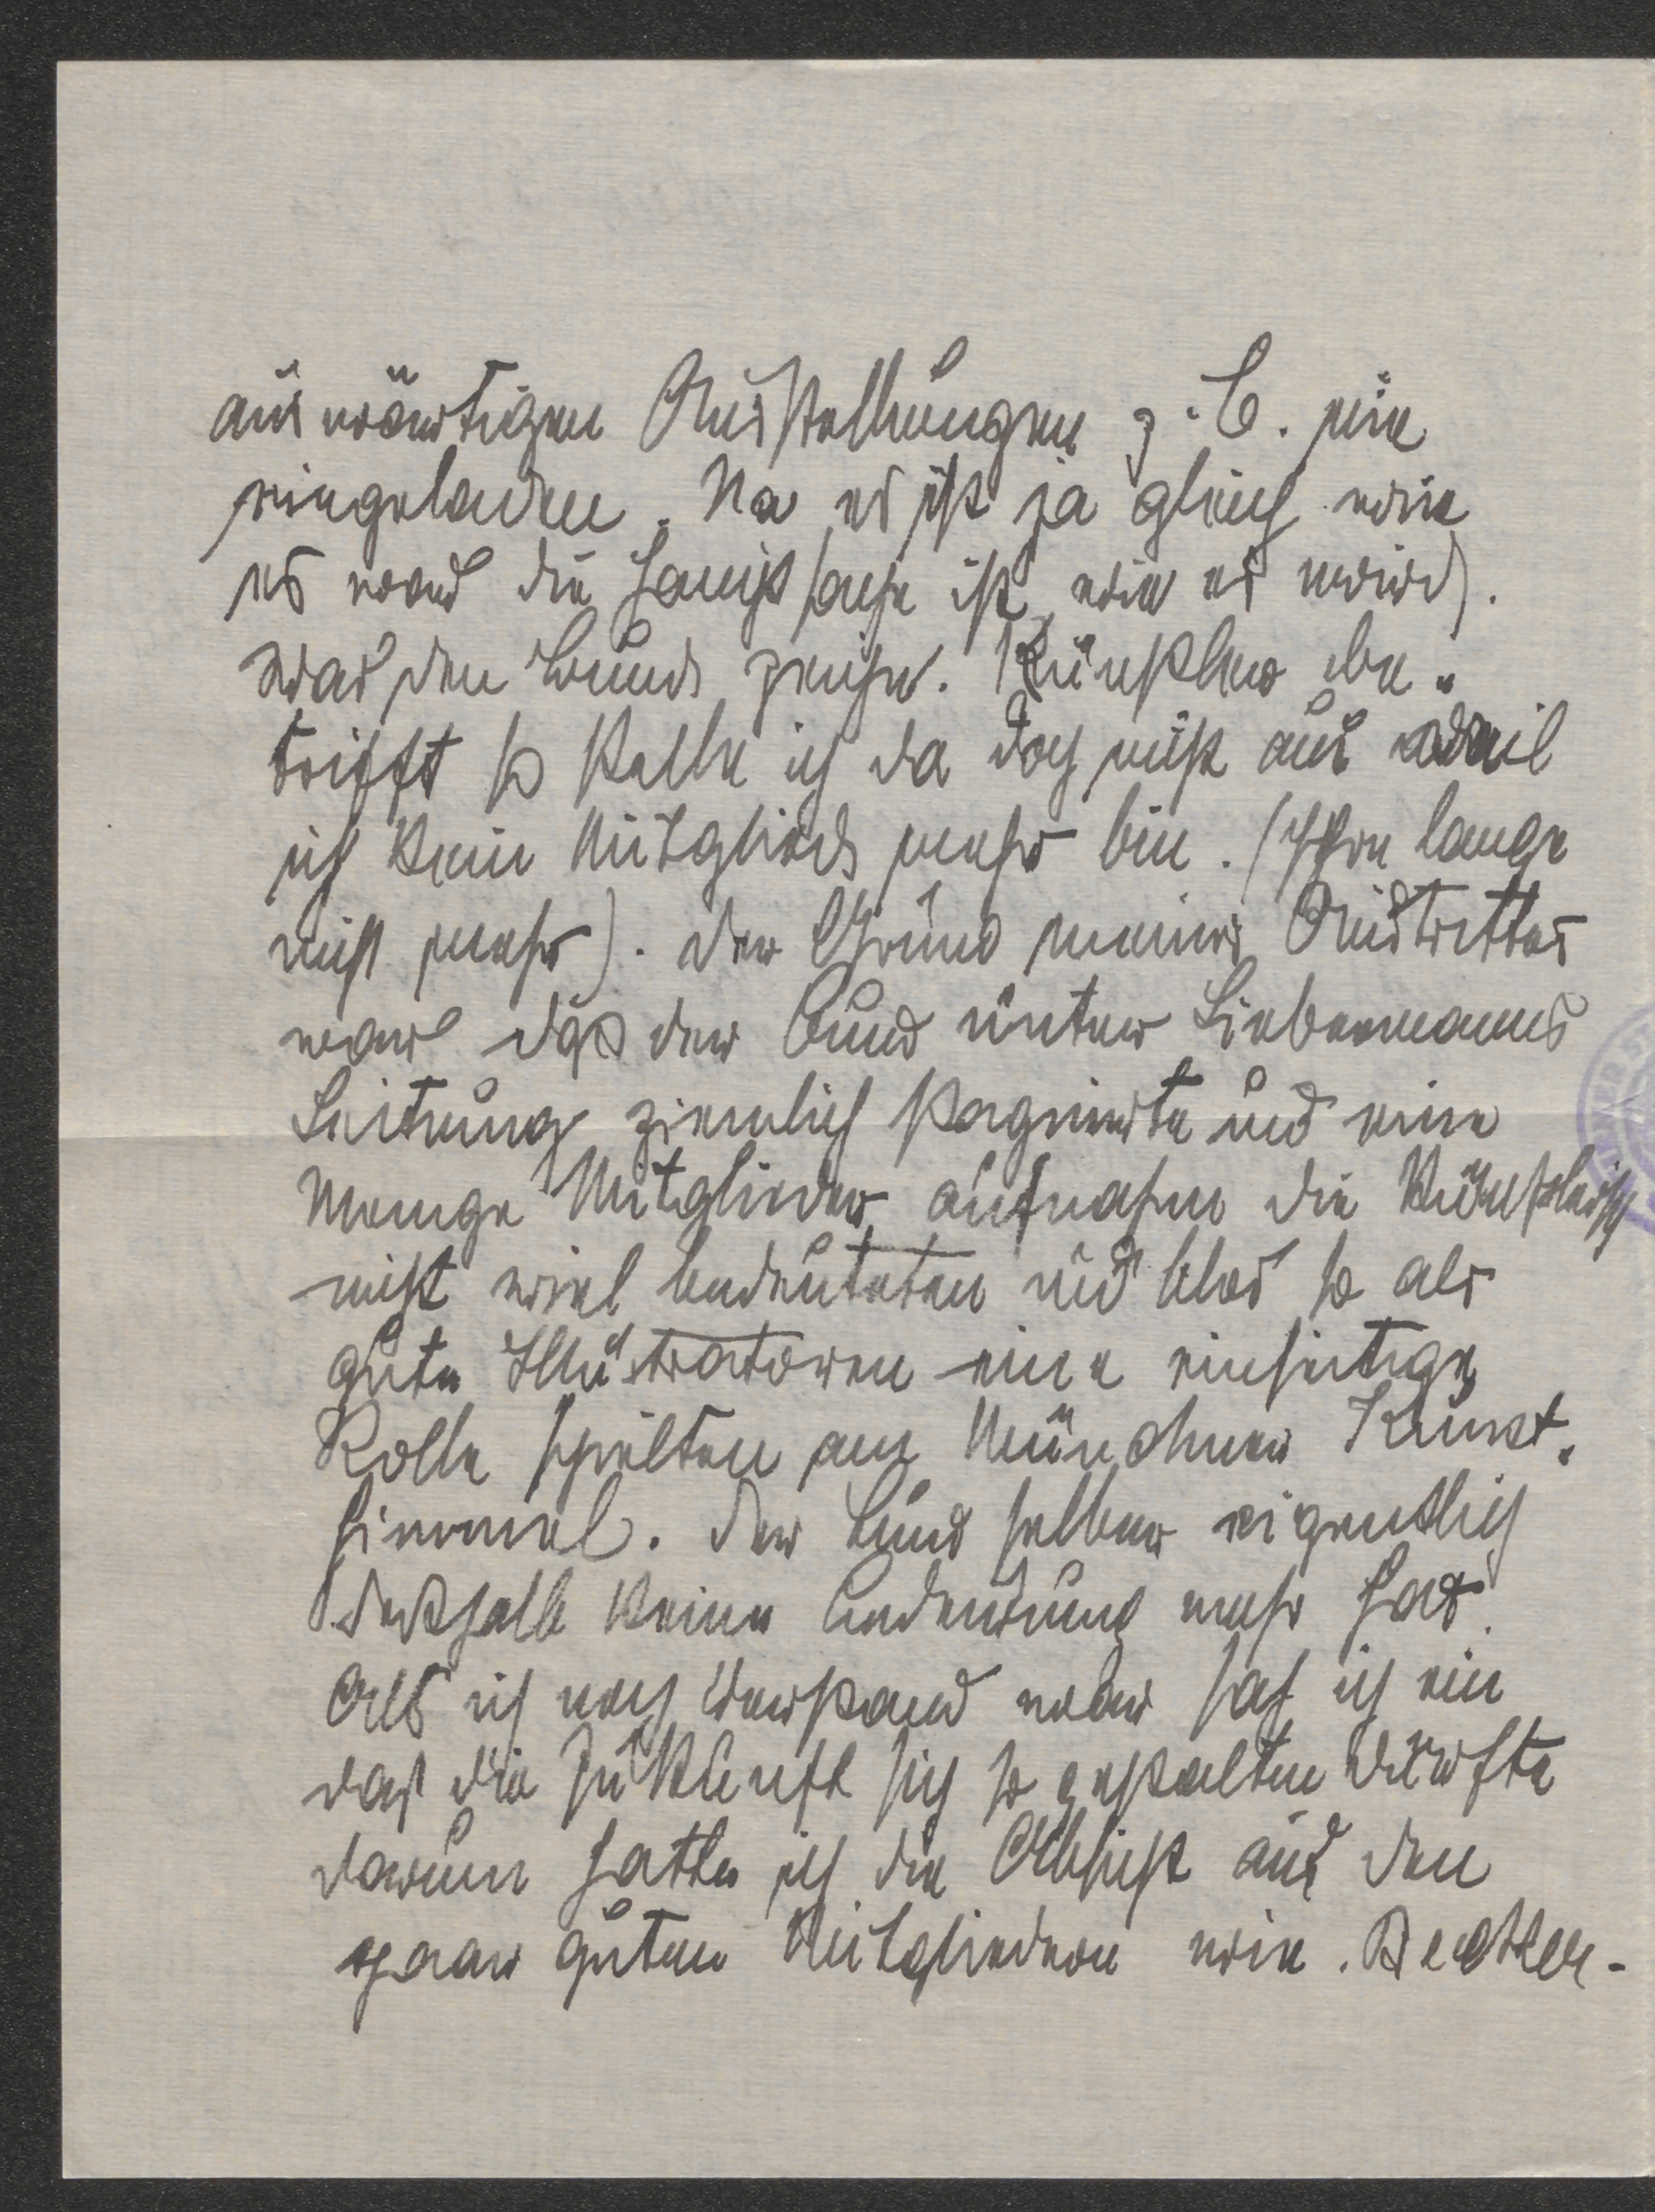 auswärtigen Ausstellungen z. B. nie
eingeladen. Na es ist ja gleich wie
es war die Hauptsache ist wie es wird.
Was den Bund zeichn. Künstler be-
trifft so stelle ich da doch nicht aus weil
ich kein Mitglied mehr bin. (Schon lange
nicht mehr). Der Grund meines Austrittes
war das der Bund unter Liebermanns
Leitung ziemlich stagnierte und eine
Menge Mitglieder aufnahm die künstlerisch
nicht viel bedeuteten und blos so als
gute Illustratoren eine einseitige
Rolle spielten am Münchner Kunst-
himmel. Der Bund selber eigentlich
deßhalb keine Bedeutung mehr hat.
Als ich noch Vorstand war sah ich ein
das die Zukunft sich so gestalten dürfte
darum hatte ich die Absicht aus den
paar guten Mitgliedern wie